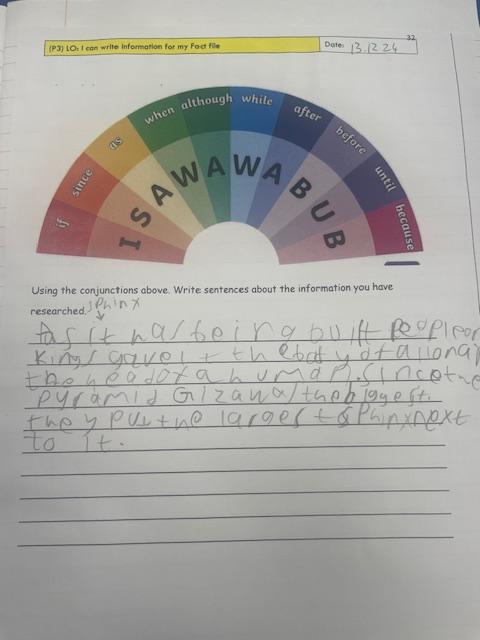 32
(P3) LO: I can write information for my Fact file
Date: 13.12.24
if since as when although while after before until because
I S A W A W A B U B
Using the conjunctions above. Write sentences about the information you have
researched. sphinx
As it was being built people or
Kings gavei + the body of a lion
the head of a human. since the
pyramid Giza was the biggest.
they put the largest sphinx next
to it.